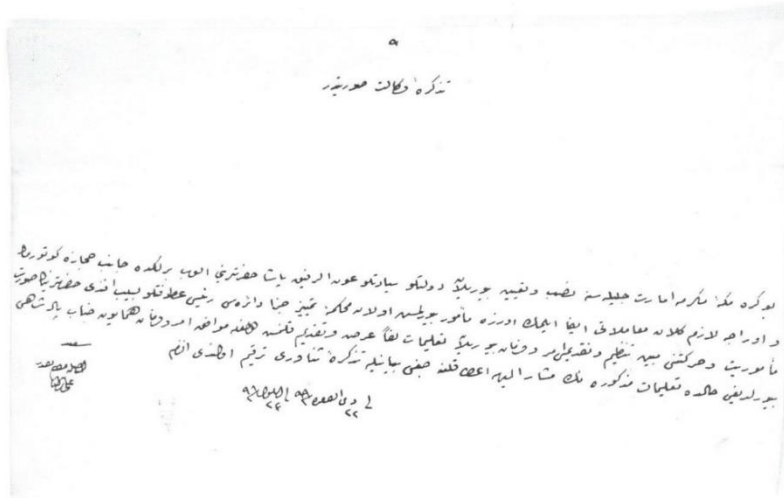 تذكره وكالت صورتيدر
بو كره مكه مكرمه امارت جليله سنه نصب وتعيين بيوريلان دولتلو سيادتلو عون الرفيق پاشا حضرتلرينى الوب برلكده جانب حجازه كوتورمك
و اوراجه لازم كلان معاملاتى ايفا ايلمك اوزره مأمور بيورلمش اولان محكمه تمييز جزا دائره سى رئيسى عطوفتلو لبيب افندى حضرتلرينك صورت
مأموريت وحركتنى مبين تنظيم وتقديمى امر وفرمان بيوريلان تعليمات لفا عرض وتقديم قلنمش موافق امر وفرمان همايون جناب پادشاهى
بيورلديغى حالده تعليمات مذكوره نك مشار اليه اعطا قلنه جغى بيانيله تذكره ثناورى ترقيم اولندى افندم
فى ٢٢ ذى القعده